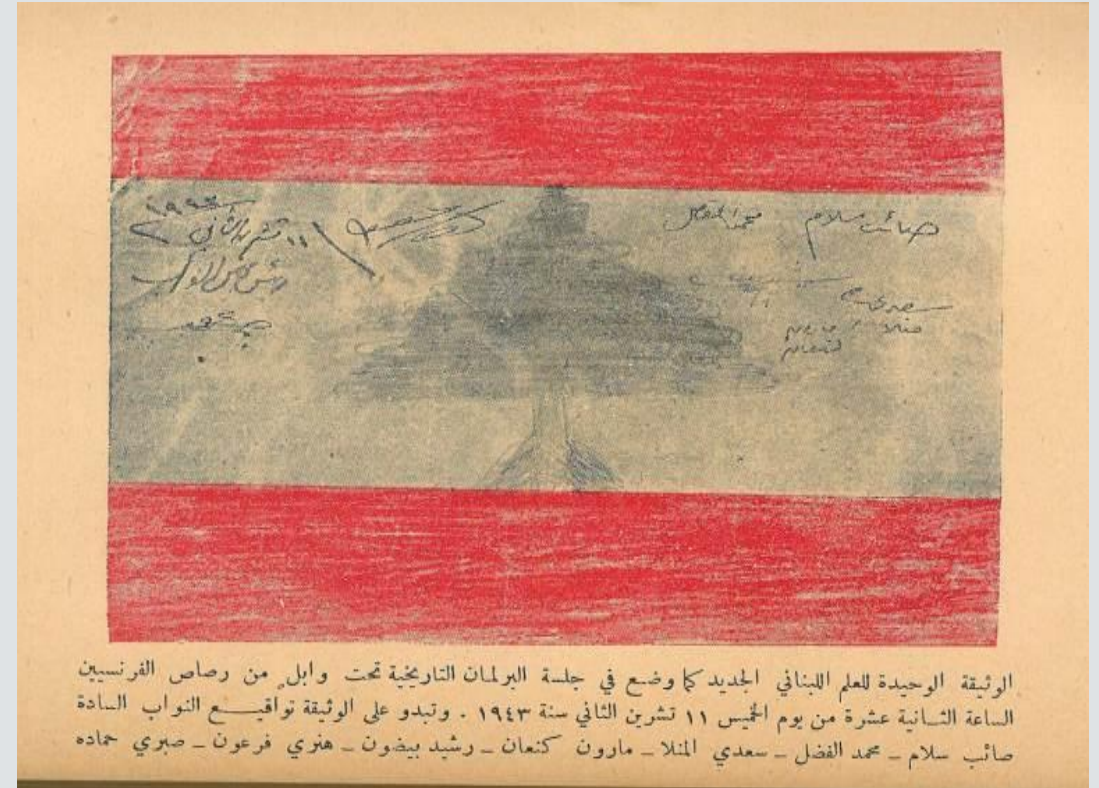 صائب سلام
محمد الفضل
١١ تشرين الثاني
١٩٤٣
رئيس مجلس النواب
سعدي
منلا
مارون
كنعان
الوثيقة الوحيدة للعلم اللبناني الجديد كما وضع في جلسة البرلمان التاريخية تحت وابلٍ من رصاص الفرنسيين
الساعة الثانية عشرة من يوم الخميس ١١ تشرين الثاني سنة ١٩٤٣ . وتبدو على الوثيقة تواقيع النواب السادة
صائب سلام – محمد الفضل – سعدي المنلا – مارون كنعان – رشيد بيضون – هنري فرعون – صبري حماده